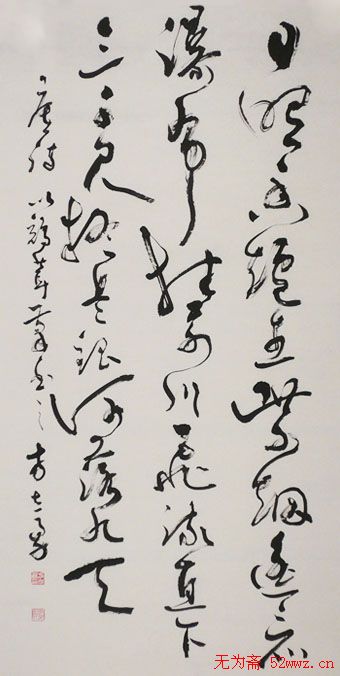 日照香爐生紫烟遥看
瀑布挂前川飛流直下
三千尺疑是銀河落九天
唐诗 以
无为斋 52wwz.cn